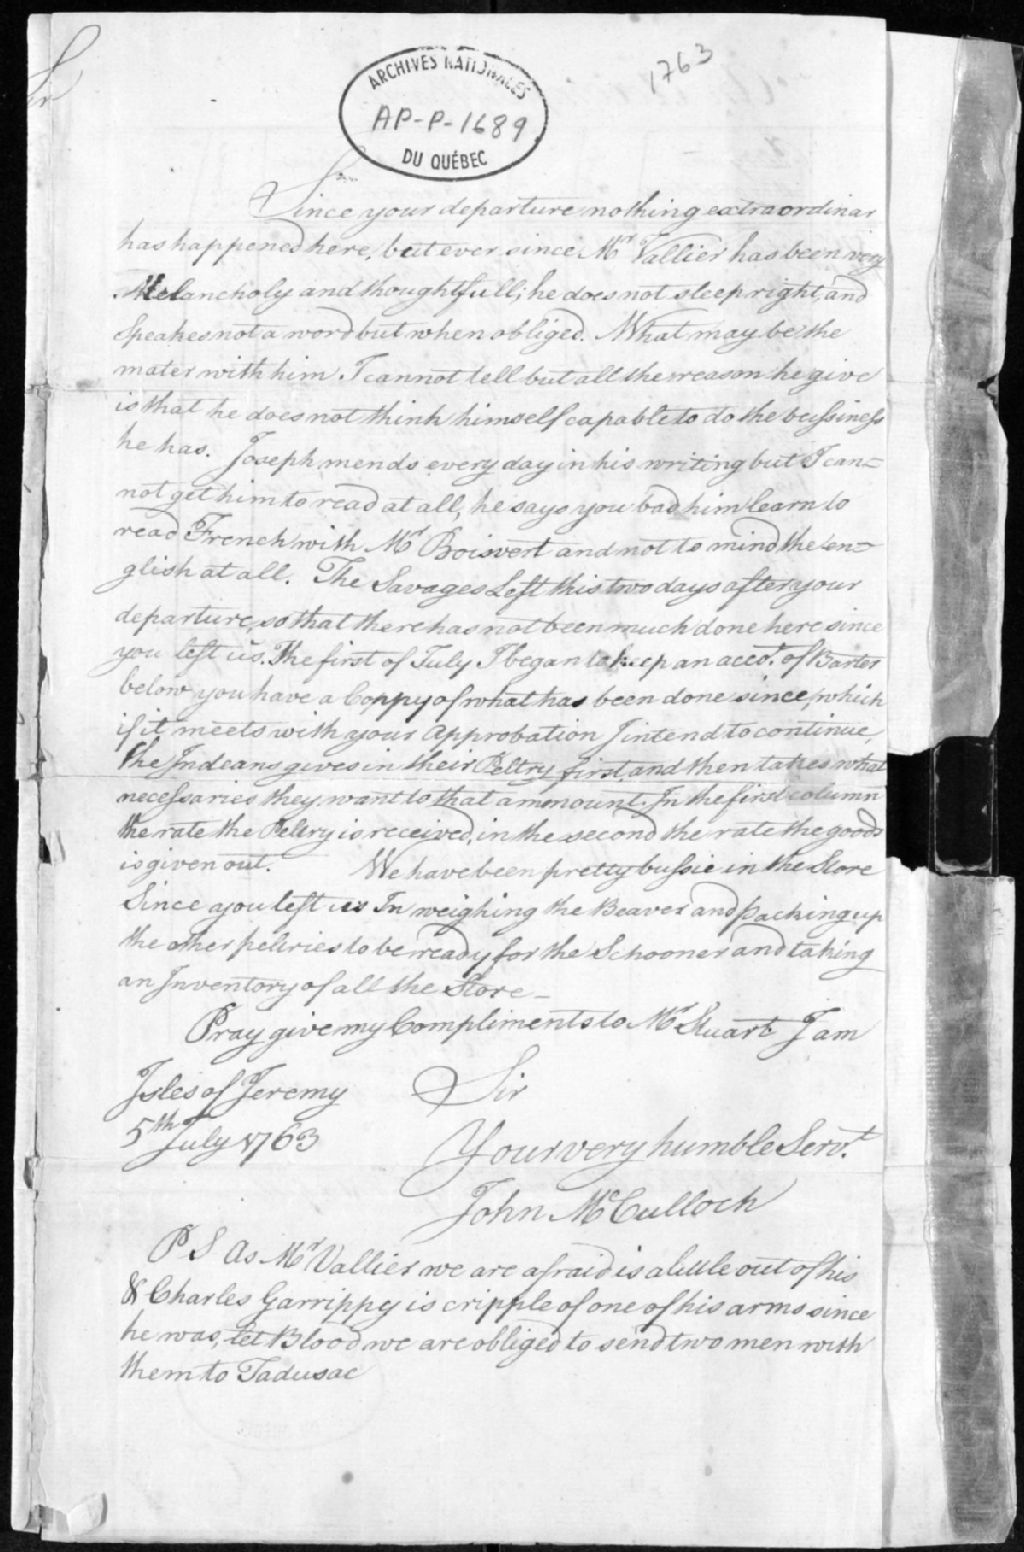 Sir
1763
ARCHIVES NATIONALES
AP-P-1689
DU QUÉBEC
Since your departure nothing extraordinar
has happened here, but ever since Mr Vallier has been very
Melancholy and thoughtfull; he does not sleep right, and
Speakes not a word but when obliged. What may be the
mater with him I cannot tell but all the reason he give
is that he does not think himself capable to do the bussiness
he has. Joseph mends every day in his writing but I can=
not get him to read at all, he says you bad him learn to
read French with Mr Boisvert and not to mind the en=
glish at all. The Savages Left this two days after your
departure, so that there has not been much done here since
you left us. The first of July I began to keep an accot. of Barter
below you have a Coppy of what has been done since, which
if it meets with your Approbation I intend to continue,
the Indeans gives in their Peltry first and then takes what
necessaries they want to that amomount. In the first column
the rate the Peltry is received, in the second the rate the goods
is given out. We have been pretty bussie in the Store
Since you left us In weighing the Beaver and packing up
the other peltries to be ready for the Schooner and taking
an Inventory of all the Store _
Pray give my Compliments to Mr Stuart I am
Isles of Jeremy Sir
5th July 1763
Your very humble Servt.
John McCulloch
P S As Mr Vallier we are afraid is a little out of his
& Charles Garrippy is cripple of one of his arms since
he was, let Blood we are obliged to send two men with
them to Tadusac